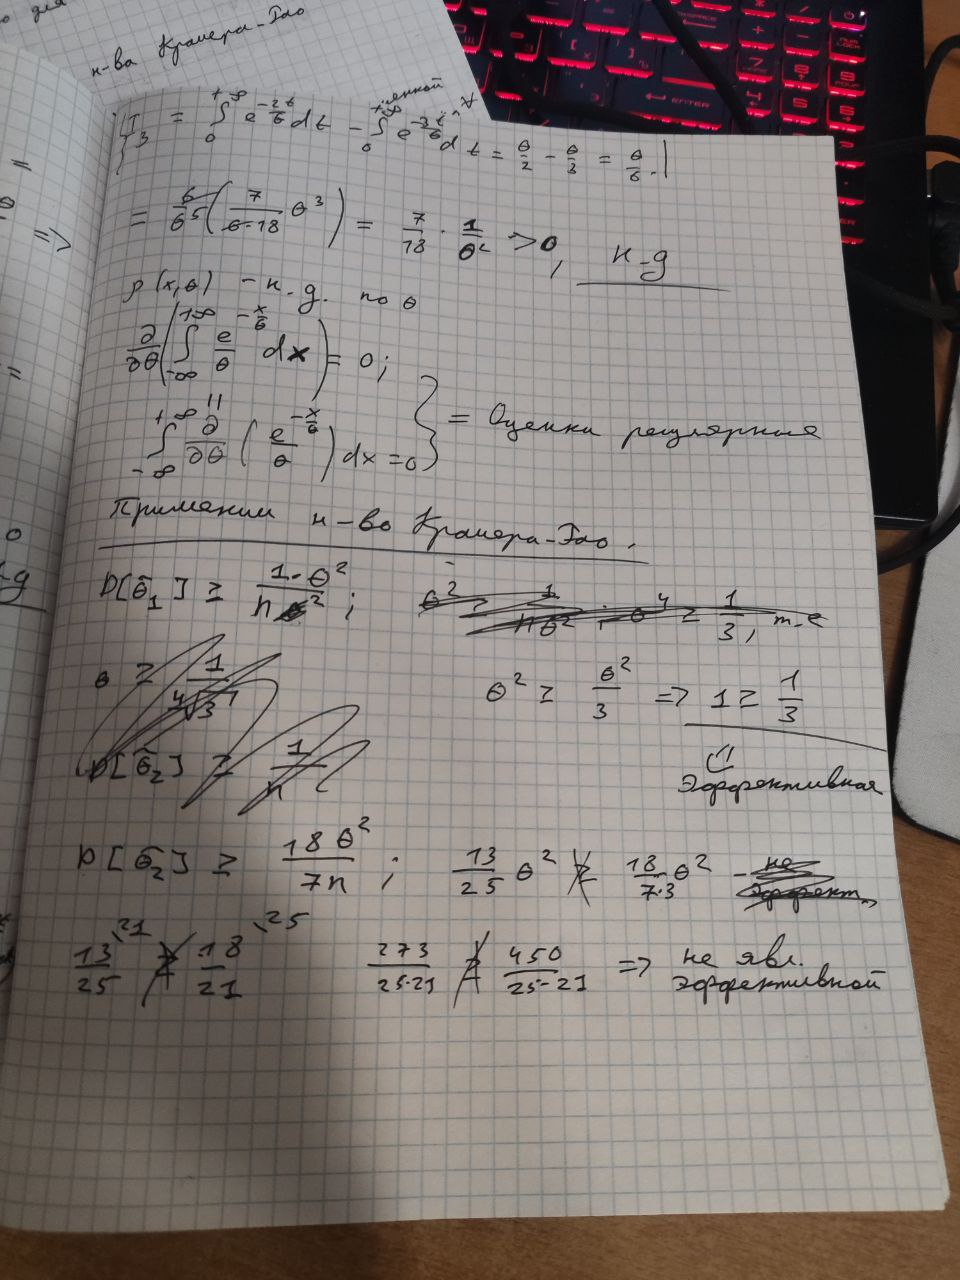 н-ва Крамера-Рао
J₃ = ∫₀^{+∞} e^{-2t/θ} dt - ∫₀^{+∞} e^{-3t/θ} dt = θ/2 - θ/3 = θ/6.
= 6/θ⁵ (7/(6·18) θ³) = 7/18 · 1/θ² > 0, н-д
p(x,θ) - н.д. по θ
∂/∂θ (∫_{-∞}^{+∞} e^{-x/θ}/θ dx) = 0;
∫_{-∞}^{+∞} ∂/∂θ (e^{-x/θ}/θ) dx = 0 } = Оценки регулярные
Применим н-во Крамера-Рао.
D[θ̃₁] ≥ 1·θ²/n;
θ² ≥ θ²/3 => 1 ≥ 1/3
эффективная
D[θ̃₂] ≥ 18θ²/7n; 13/25 θ² ≱ 18/7·3 θ² -
13/25 \21 ≱ 18/21 \25 273/25·21 ≱ 450/25·21 => не явл. эффективной